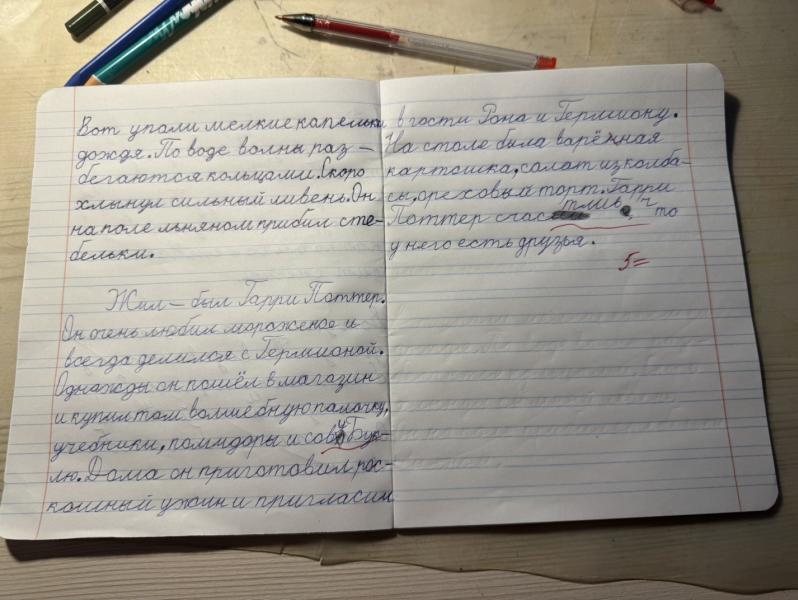 Вот упали мелкие капельки
дождя. По воде волны раз-
бегаются кольцами. Скоро
хлынул сильный ливень. Он
на поле льняном прибил сте-
бельки.
Жил-был Гарри Поттер.
Он очень любил мороженое и
всегда делился с Гермионой.
Однажды он пошёл в магазин
и купил там волшебную палочку,
учебники, помидоры и сову Бук-
лю. Дома он приготовил рос-
кошный ужин и пригласил
в гости Рона и Гермиону.
На столе была варённая
картошка, салат из колба-
сы, ореховый торт. Гарри
Поттер счастлив, что
у него есть друзья.
5=